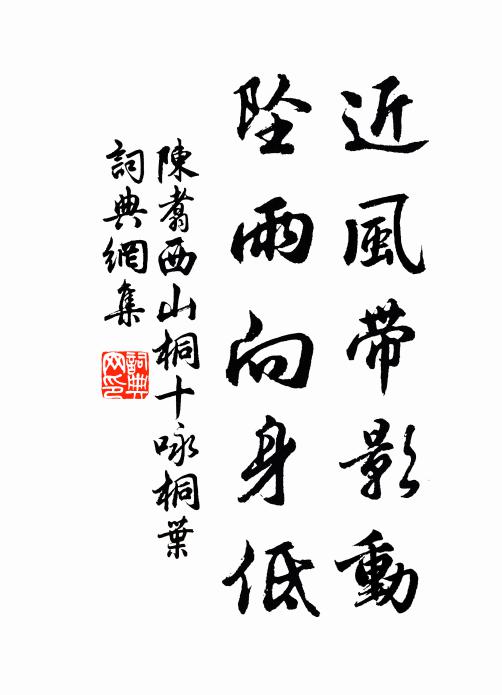 近風帶影動
坠雨向身低
陳翥西山桐十咏桐葉
詞典網集
詞典网印